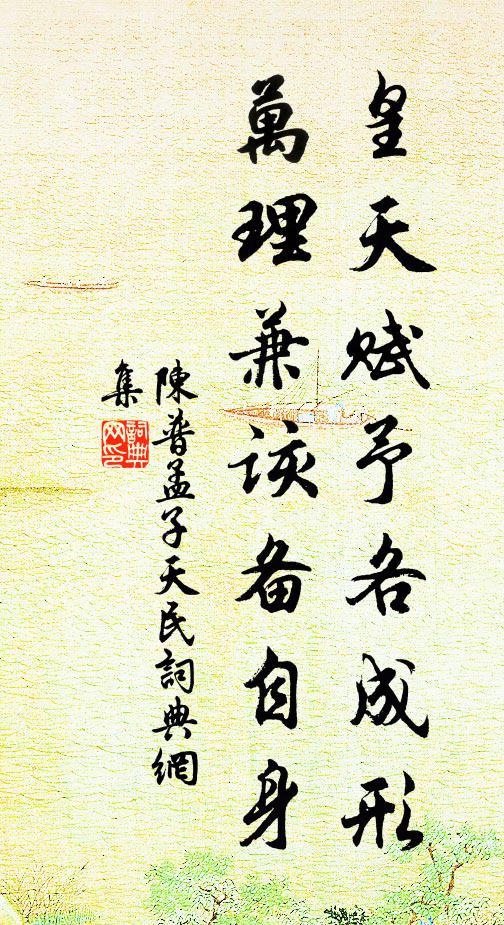 皇天賦予各成形
萬理兼該备自身
陳普孟子天民詞典網
集
詞典网印